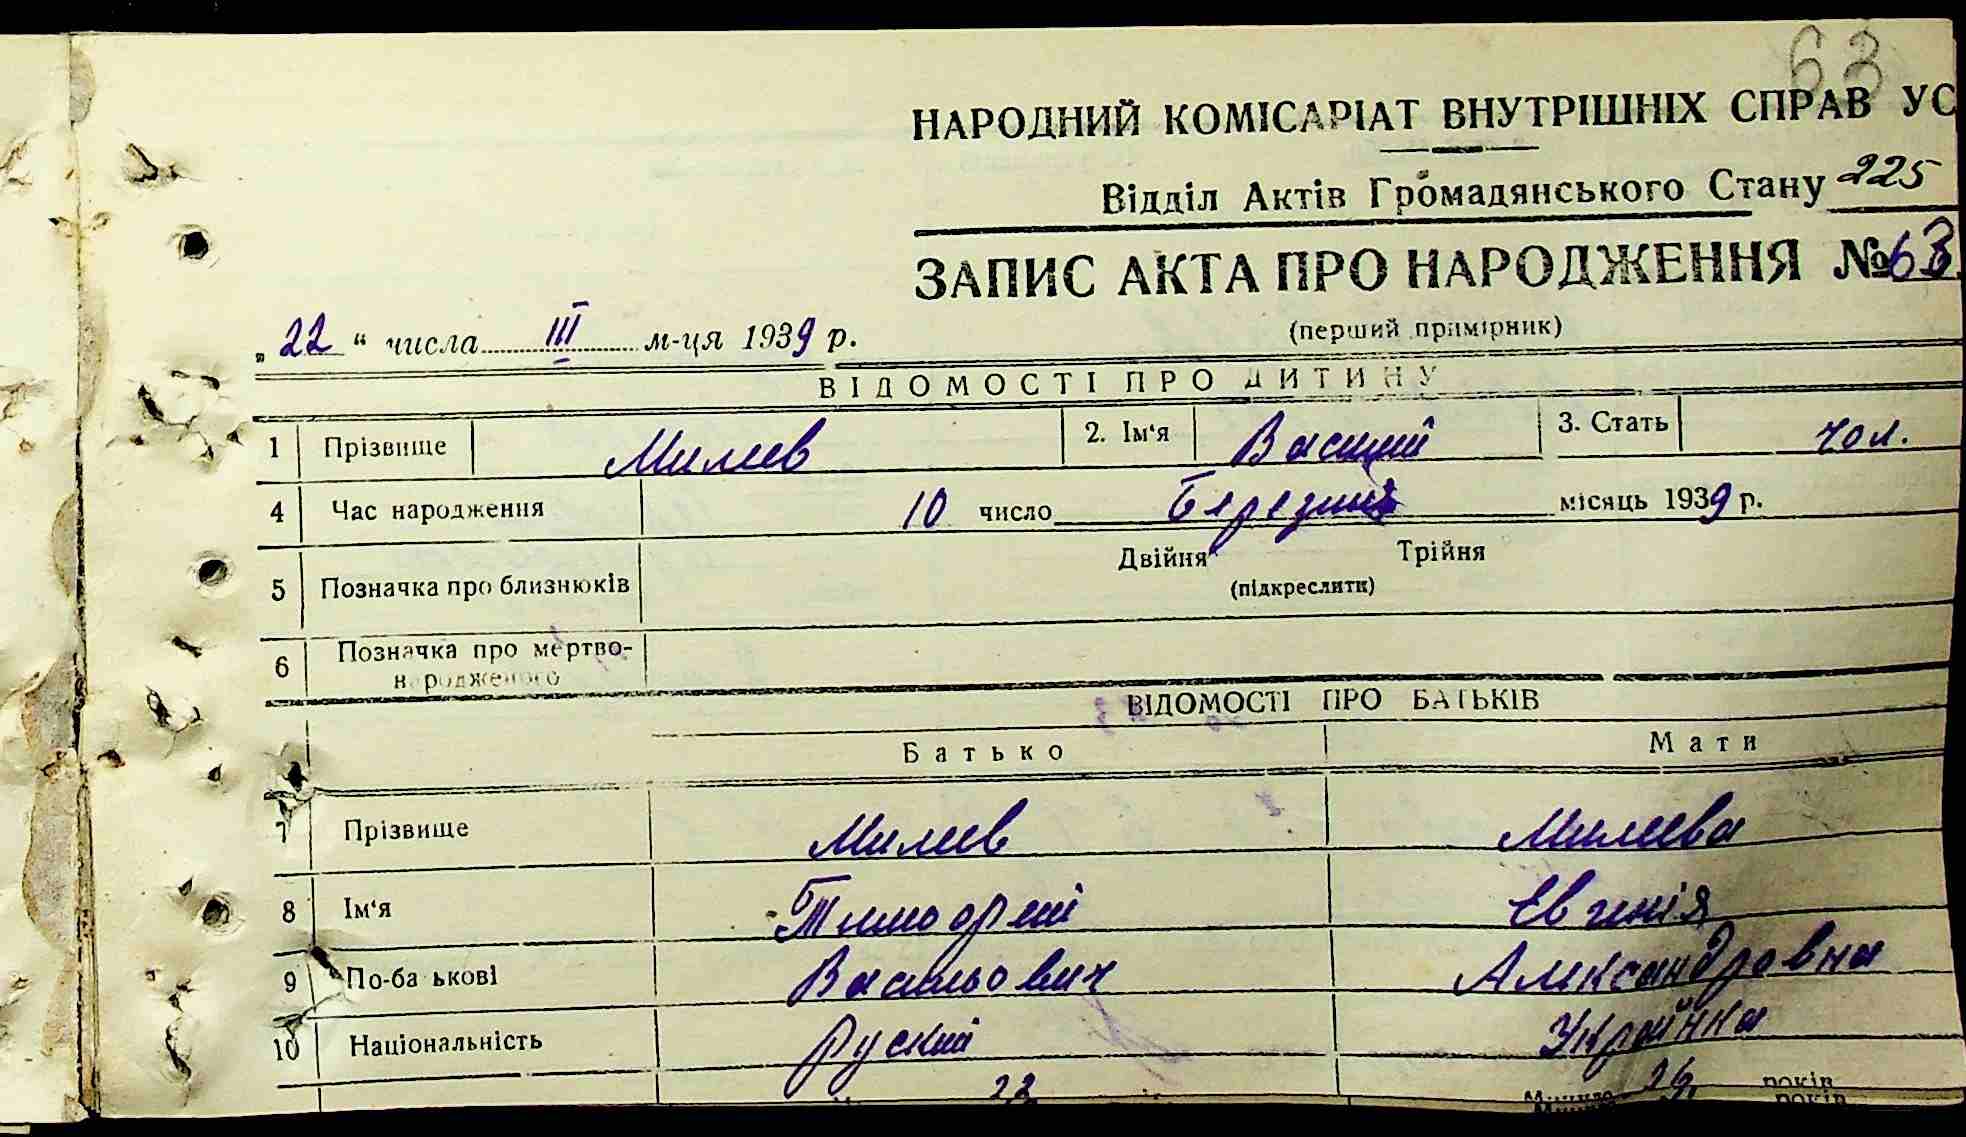 63
НАРОДНИЙ КОМІСАРІАТ ВНУТРІШНІХ СПРАВ УС
Відділ Актів Громадянського Стану 225
ЗАПИС АКТА ПРО НАРОДЖЕННЯ № 63
(перший примірник)
„ 22 “ числа III м-ця 1939 р.
ВІДОМОСТІ ПРО ДИТИНУ
1 Прізвище Милев 2. Ім'я Василий 3. Стать чол.
4 Час народження 10 число Березня місяць 1939 р.
5 Позначка про близнюків Двійня Трійня
(підкреслити)
6 Позначка про мертво-
народженого
ВІДОМОСТІ ПРО БАТЬКІВ
Батько Мати
7 Прізвище Милев Милева
8 Ім'я Тимофей Євгенія
9 По-ба ькові Васильович Александровна
10 Національність Руский Українка
23 Минуло 26 років